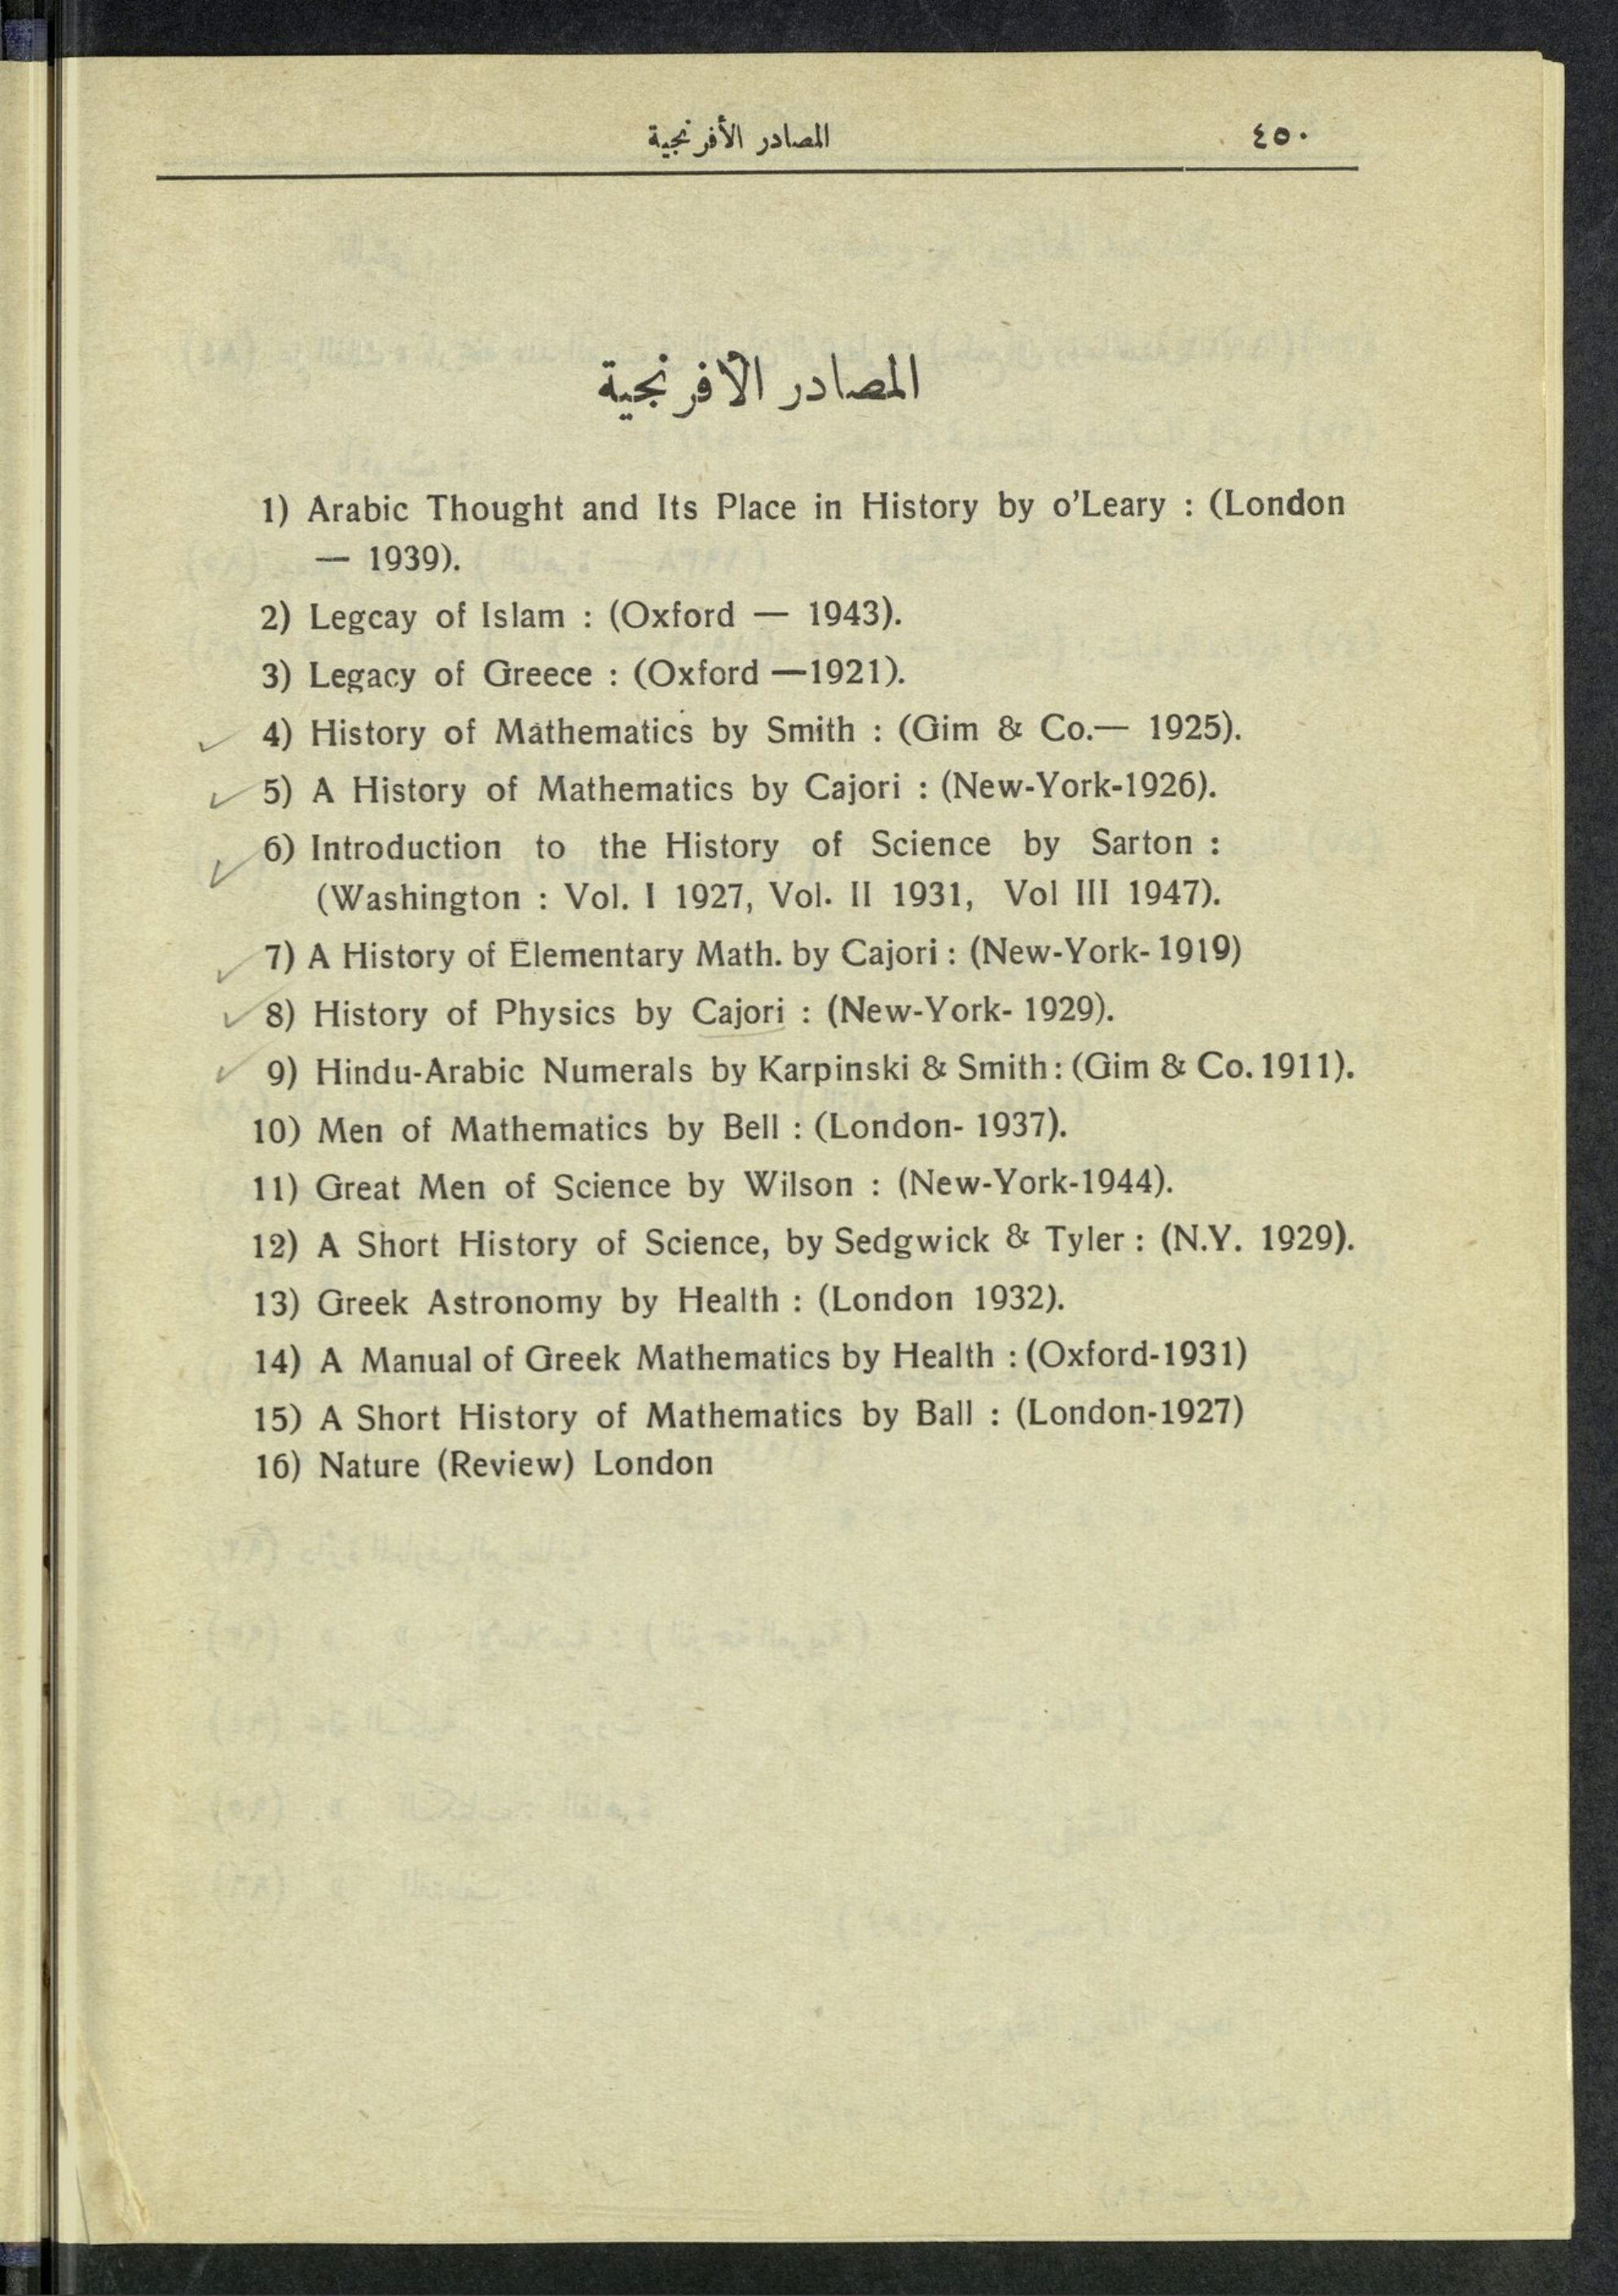 المصادر الأفرنجية ٤٥٠
المصادر الأفرنجية
1) Arabic Thought and Its Place in History by o'Leary : (London
— 1939).
2) Legcay of Islam : (Oxford — 1943).
3) Legacy of Greece : (Oxford —1921).
4) History of Mathematics by Smith : (Gim & Co.— 1925).
5) A History of Mathematics by Cajori : (New-York-1926).
6) Introduction to the History of Science by Sarton :
(Washington : Vol. I 1927, Vol. II 1931, Vol III 1947).
7) A History of Elementary Math. by Cajori : (New-York- 1919)
8) History of Physics by Cajori : (New-York- 1929).
9) Hindu-Arabic Numerals by Karpinski & Smith : (Gim & Co. 1911).
10) Men of Mathematics by Bell : (London- 1937).
11) Great Men of Science by Wilson : (New-York-1944).
12) A Short History of Science, by Sedgwick & Tyler : (N.Y. 1929).
13) Greek Astronomy by Health : (London 1932).
14) A Manual of Greek Mathematics by Health : (Oxford-1931)
15) A Short History of Mathematics by Ball : (London-1927)
16) Nature (Review) London